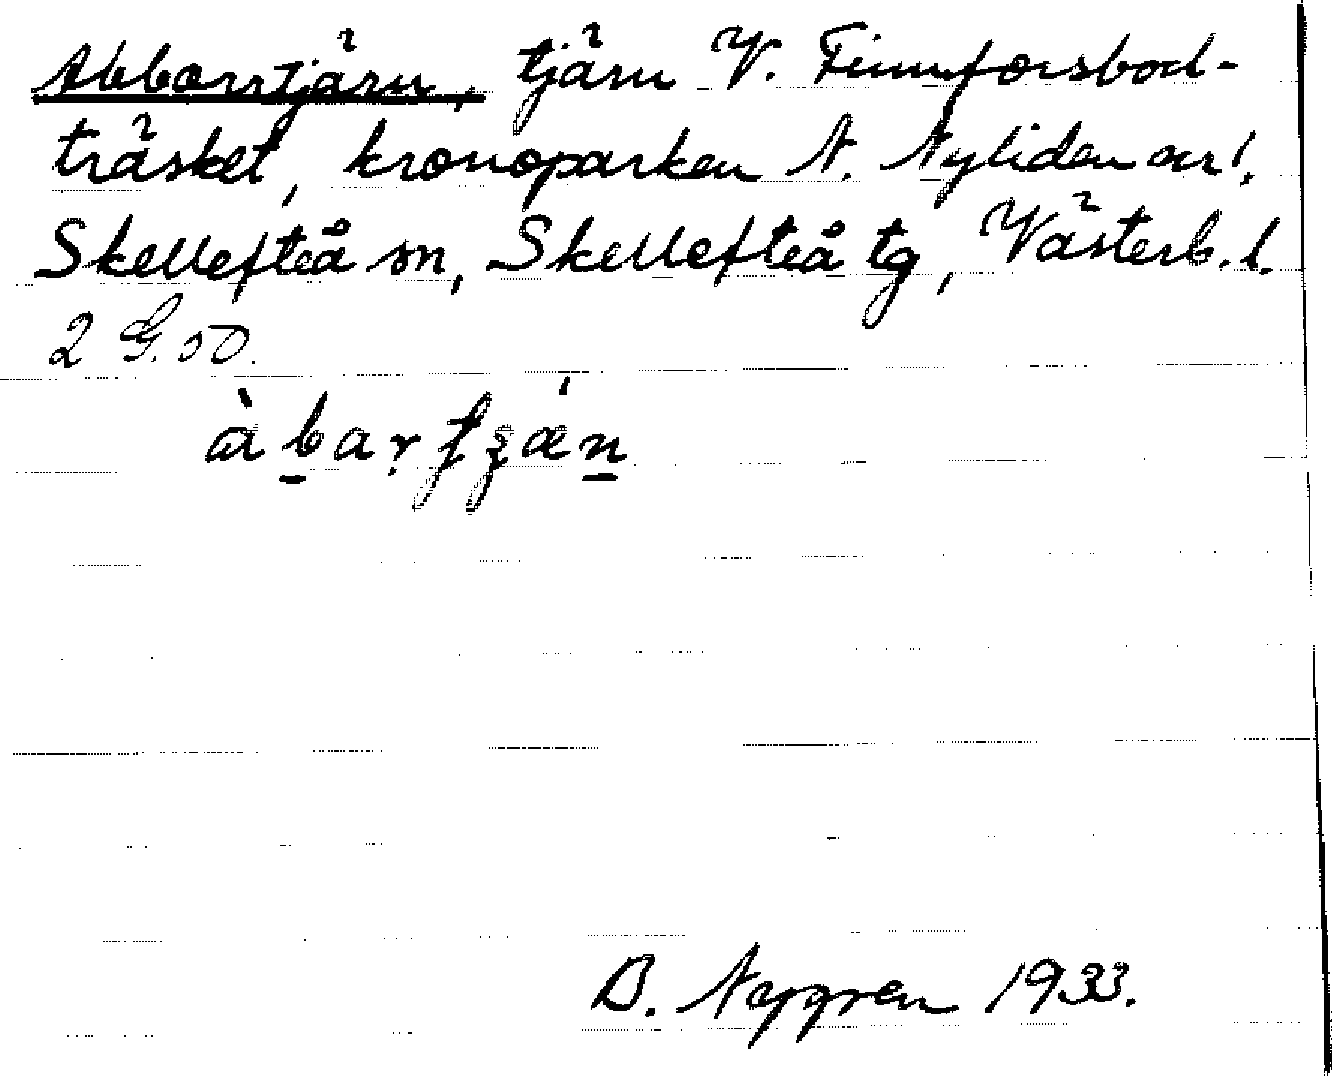 Abborrtjärn, tjärn V. Finnforsbod-
träsket, kronoparken N. Nyliden
Skellefteå sn, Skellefteå tg, Västerb. l.
2 G. SO.
B. Nygren 1933.